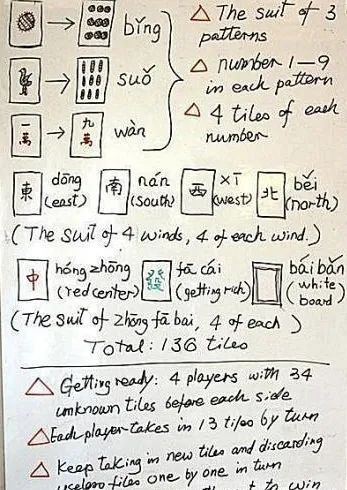 bǐng
suǒ
一萬 九萬 wàn
△ The suit of 3
patterns
△ number 1—9
in each pattern
△ 4 tiles of each
number
東 dōng (east) 南 nán (south) 西 xī (west) 北 běi (north)
(The suit of 4 winds, 4 of each wind.)
中 hóng zhōng (red center) 發 fā cái (getting rich) bái bǎn (white board)
(The suit of zhōng fā bai, 4 of each)
Total: 136 tiles
△ Getting ready: 4 players with 34
unknown tiles before each side
△ Each player takes in 13 tiles by turn
△ Keep taking in new tiles and discarding
useless tiles one by one in turn
to win